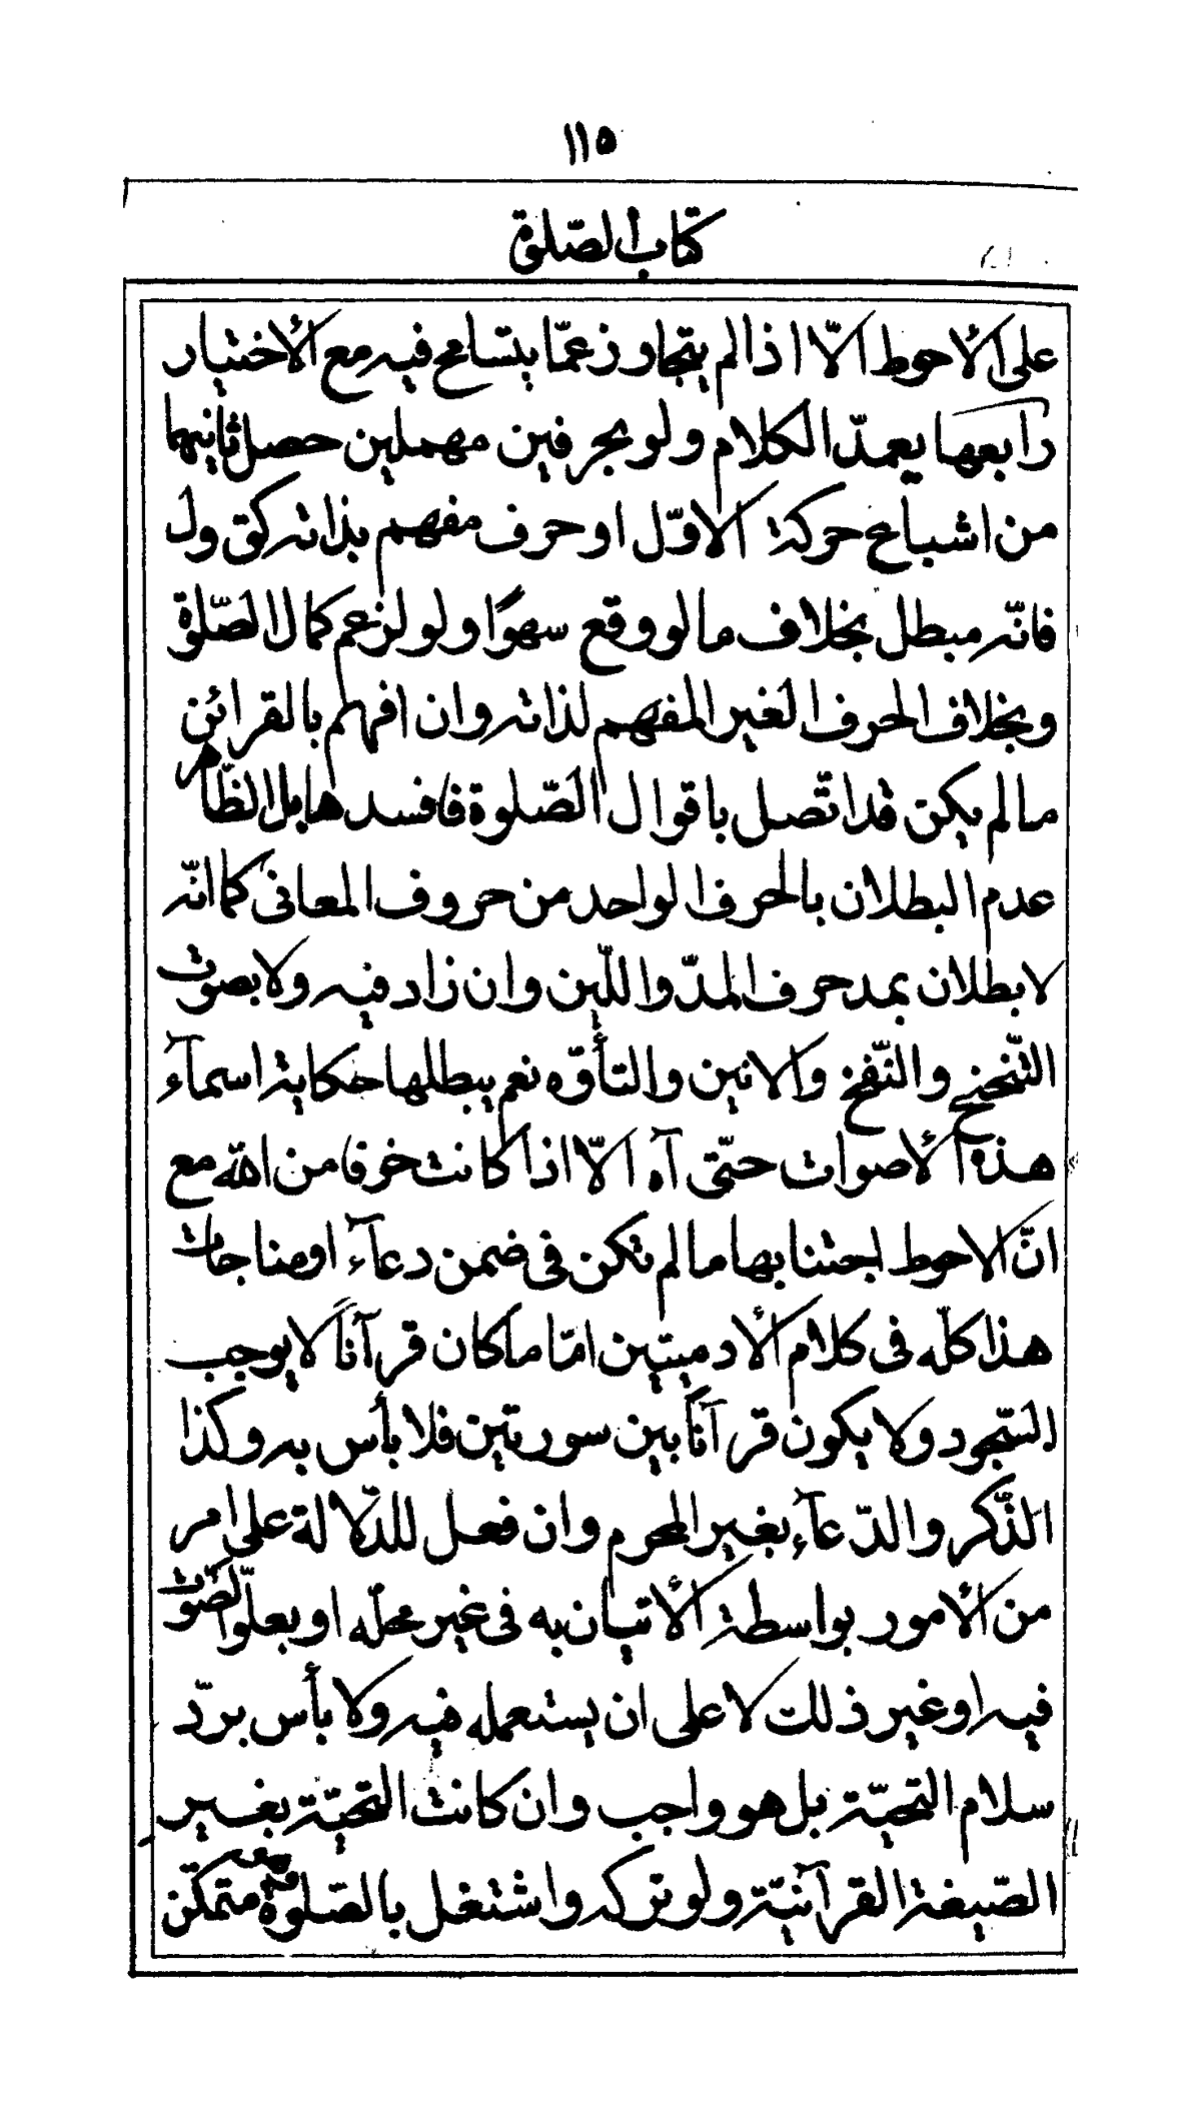 ١١٥
كتاب الصّلوة
على الأحوط الّا اذا لم يتجاوز عمّا يتسامح فيه مع الأختيار
رابعها يعمدّ الكلام ولو بحرفين مهملين حصل ثانيهما
من اشباع حركة الاوّل او حرف مفهم بذاته كق ول
فانّه مبطل بخلاف ما لو وقع سهوًا ولو لزعم كمال الصّلوة
وبخلاف الحرف الغير المفهم لذاته وان افهم بالقرائن
ما لم يكن قد اتّصل باقوال الصّلوة فافسدها بل الظّاهر
عدم البطلان بالحرف الواحد من حروف المعانى كما انّه
لا بطلان بمد حرف المدّ واللّين وان زاد فيه ولا بصوت
التّنحنح والنّفخ والانين والتأوّه نعم يبطلها حكاية اسمآء
هذه الأصوات حتّى آه الّا اذا كانت خوفا من اللّه مع
انّ الاحوط اجتنابها ما لم تكن فى ضمن دعآء او مناجات
هذا كلّه فى كلام الأدميّين امّا ما كان قرآناً لا يوجب
السّجود ولا يكون قرآناً بين سورتين فلا بأس به وكذا
الذّكر والدّعآء بغير المحرم وان فعل للدّلالة على امر
من الأمور بواسطة الأتيان به فى غير محلّه او بعلوّ الصّوت
فيه او غير ذلك لا على ان يستعمله فيه ولا بأس بردّ
سلام التحيّة بل هو واجب وان كانت التحيّة بغير
الصّيغة القرآنيّة ولو تركه واشتغل بالصّلوة متمكّن